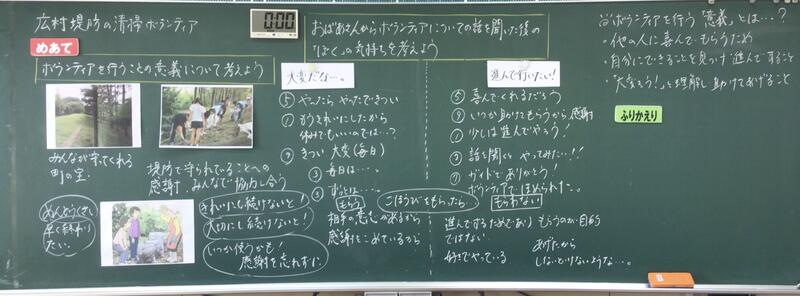 広村堤防の清掃ボランティア
めあて
ボランティアを行うことの意義について考えよう
0:00
おばあさんからボランティアについての話を聞いた後の
「ぼく」の気持ちを考えよう
みんなが守ってくれる
町の宝
堤防で守られていることへの
感謝、みんなで協力し合う
めんどうくさい
早く終わり
たい。
きれいにし続けないと!
大切にし続けないと!
いつか使うかも!
感謝を忘れずに
大変だなー。
⑤ やったら やったできつい
① もうきれいにしたから
休みでもいいのでは…?
⑨ きつい 大変(毎日)
③ 毎日は…。
③ ずっとは…。
進んで行いたい!
⑤ 喜んでくれるだろう
⑨ いつか助けてもらうから感謝
① 少しは進んでやろう!
⑧ 話を聞くと やってみたい!!
⑦ ガイドでありがとう!
ボランティアで ほめられた。
ごほうびをもらったら…
もらう
相手の意志があるから
感謝をこめているから
もらわない
進んでするためであり もらうのが目的
ではない
好きでやっている
あげたから
しないといけないような…。
ボランティアを行う「意義」とは…?
・他の人に喜んでもらうため
・自分にできることを見つけ進んですること
・「大変そう!」を理解し助けてあげること
ふりかえり